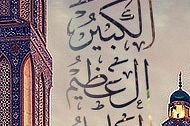 الكَبِيرُ
العَظِيمُ